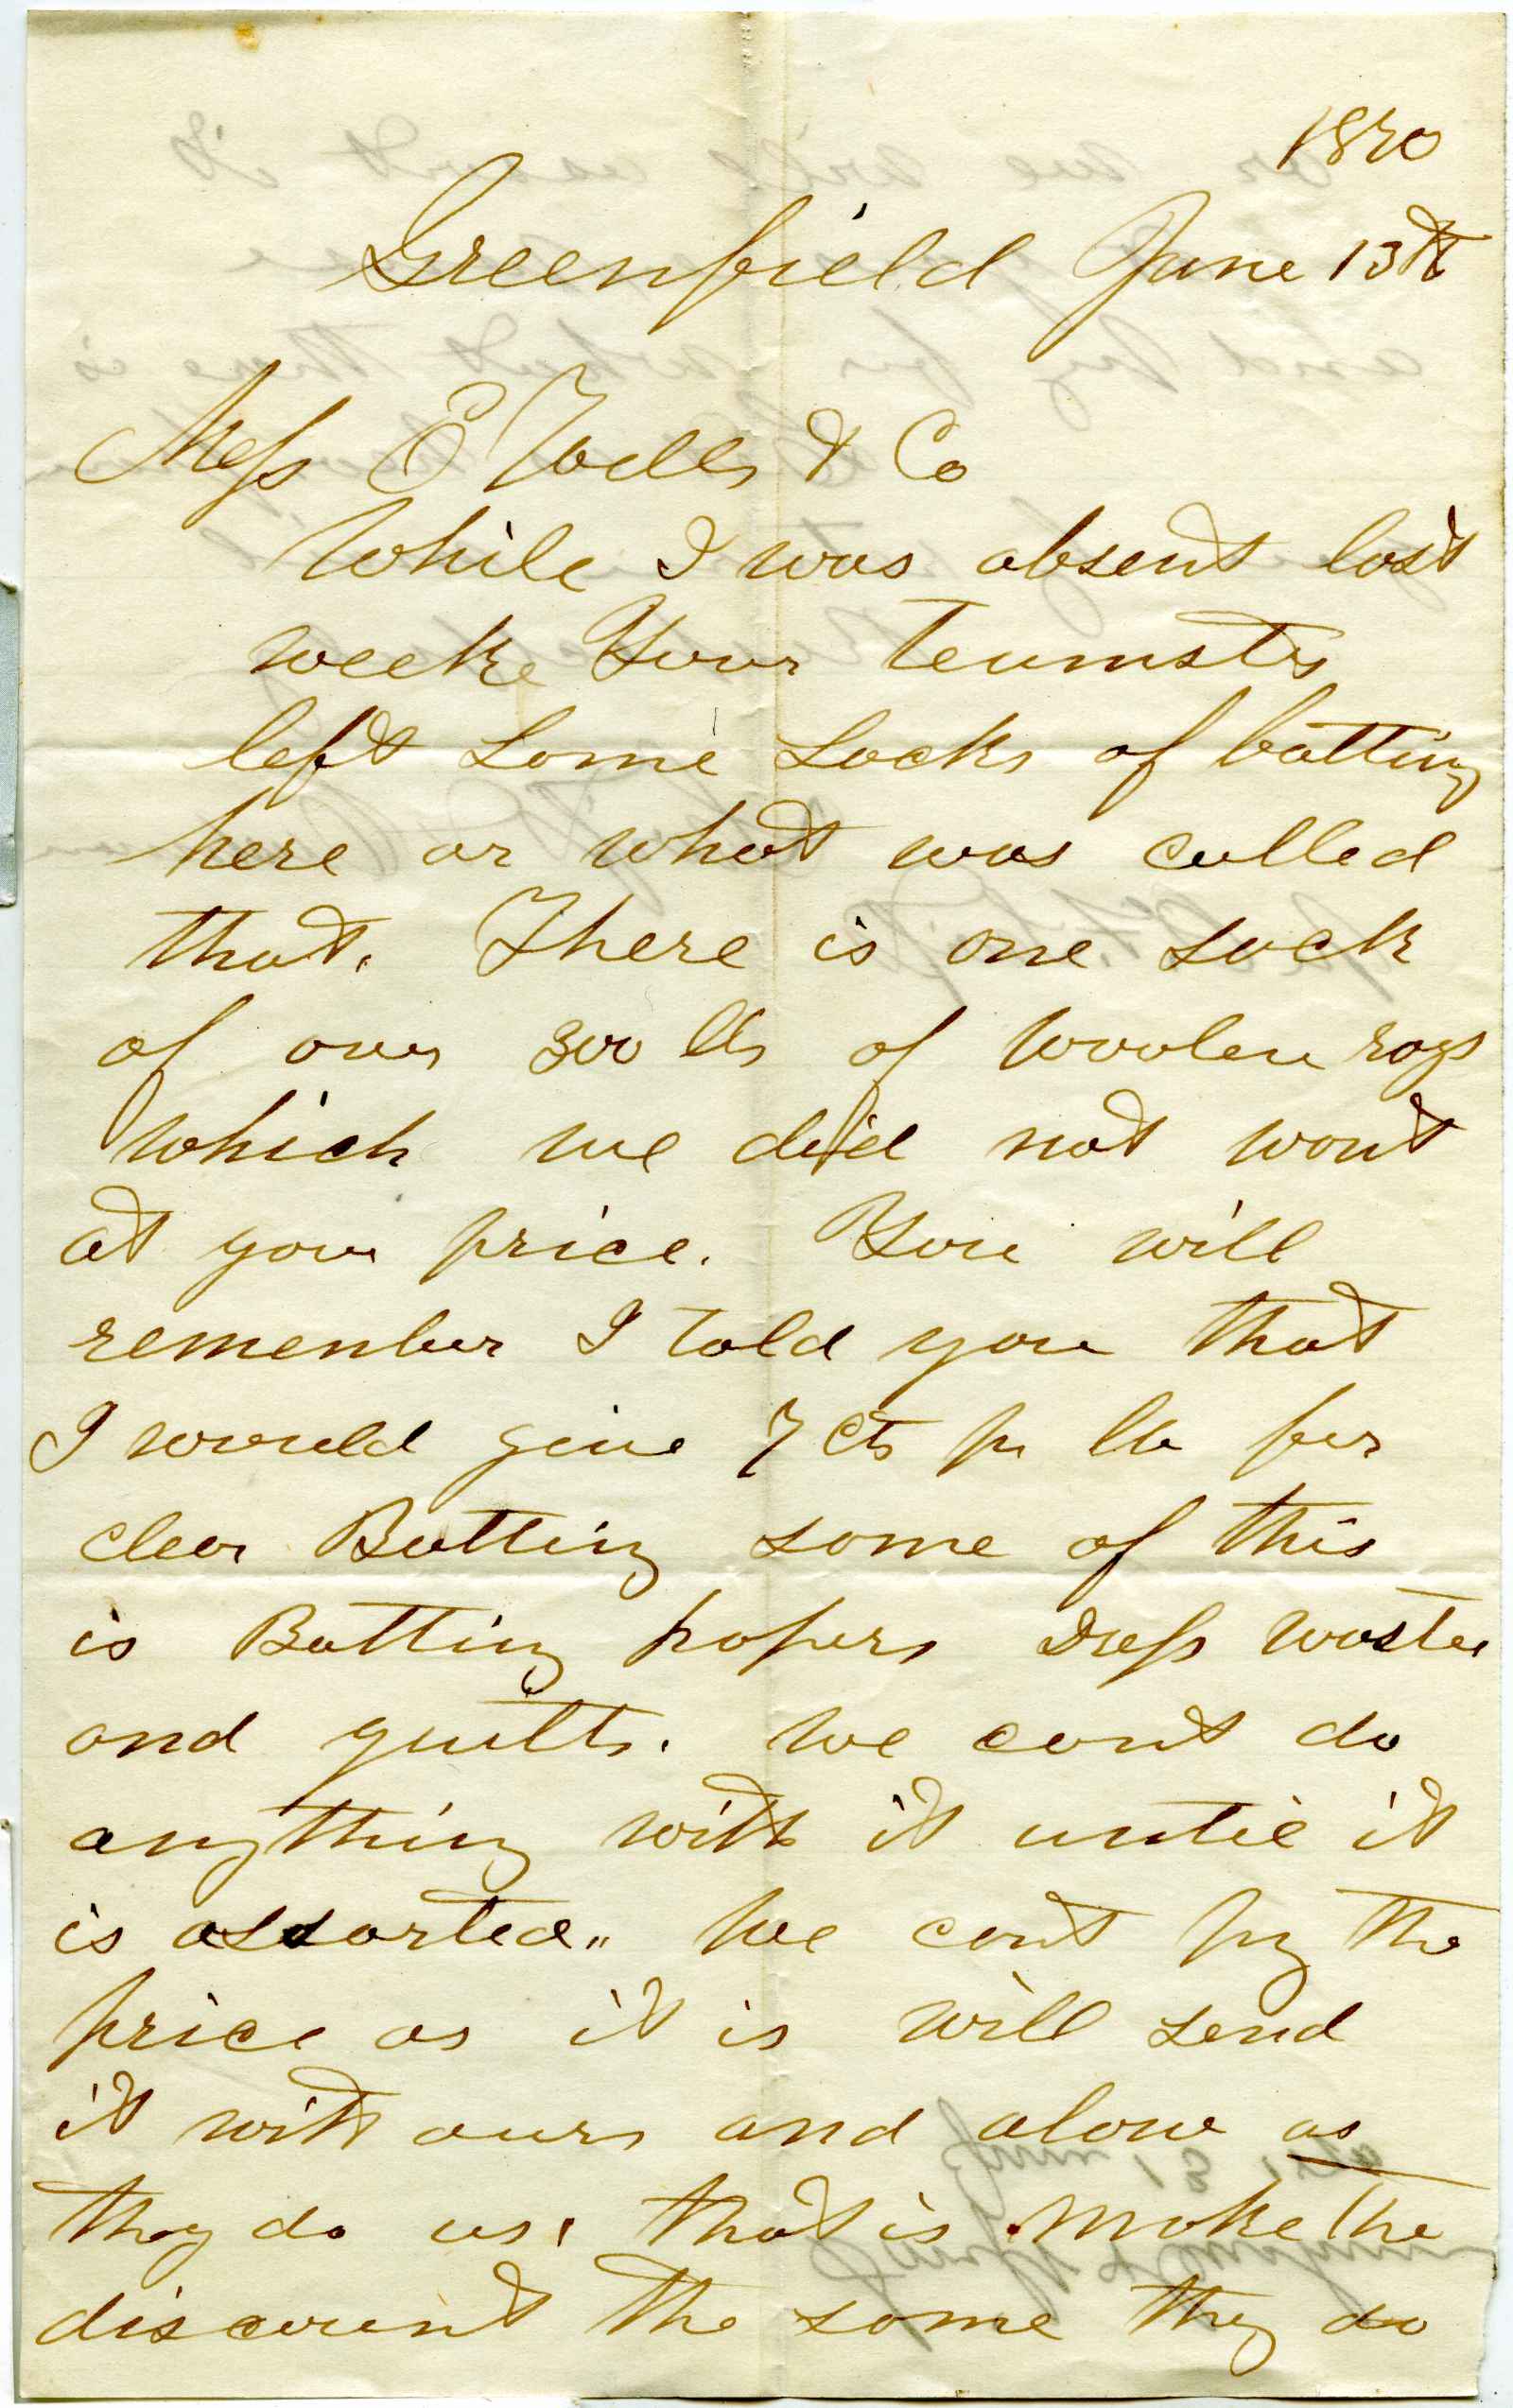 1870
Greenfield June 13th
Mess E Wells & Co
While I was absent last
weeke Your Teamsters
left some sacks of batting
here or what was called
that. There is one sack
of over 300 lbs of Woolen rags
which we did not want
at your price. You will
remember I told you that
I would give 7 cts pr lb for
clear Batting some of this
is Batting papers Dress wastes
and quilts. We cant do
anything with it until it
is assorted" We cant pay the
price as it is will send
it with ours and alow as
they do us, that is make the
discount the same they do